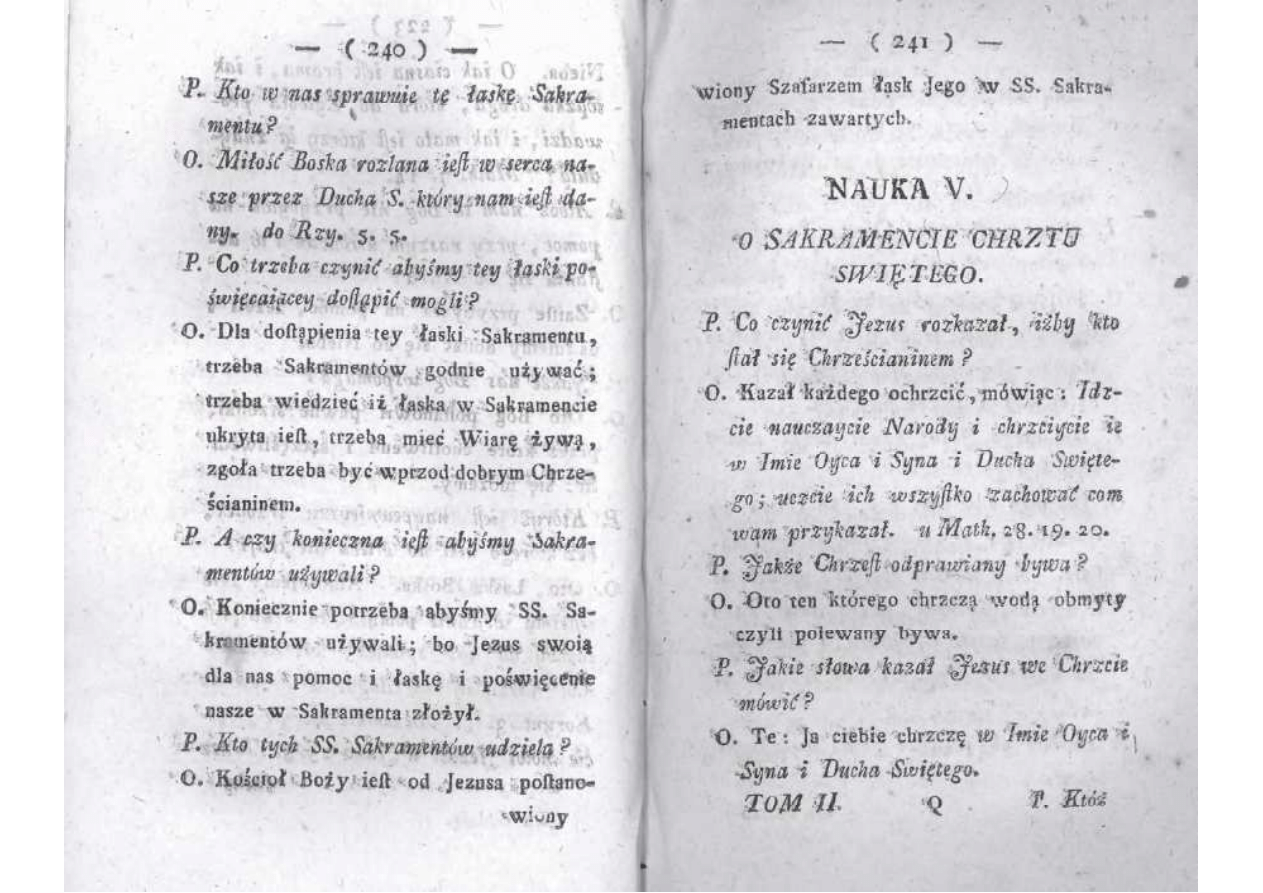 — ( 240 ) —
P. Kto w nas sprawnie tę łaskę Sakra-
mentu?
O. Miłość Boska rozlana ieſt w serca na-
sze przez Ducha S. który nam ieſt da-
ny. do Rzy. 5. 5.
P. Co trzeba czynić abyśmy tey łaski po-
święcaiącey doſtąpić mogli?
O. Dla doſtąpienia tey łaski Sakramentu,
trzeba Sakramentów godnie używać;
trzeba wiedzieć iż łaska w Sakramencie
ukryta ieſt, trzeba mieć Wiarę żywą,
zgoła trzeba być wprzod dobrym Chrze-
ścianinem.
P. A czy konieczna ieſt abyśmy Sakra-
mentów używali?
O. Koniecznie potrzeba abyśmy SS. Sa-
kramentów używali; bo Jezus swoią
dla nas pomoc i łaskę i poświęcenie
nasze w Sakramenta złożył.
P. Kto tych SS. Sakramentów udziela?
O. Kościoł Boży ieſt od Jezusa poſtano-
wiony
— ( 241 ) —
wiony Szafarzem łask Jego w SS. Sakra-
mentach zawartych.
NAUKA V.
O SAKRAMENCIE CHRZTU
SWIĘTEGO.
P. Co czynić Jezus rozkazał, iżby kto
ſtał się Chrześcianinem?
O. Kazał każdego ochrzcić, mówiąc: Idz-
cie nauczaycie Narody i chrzciycie ie
w Imie Oyca i Syna i Ducha Swięte-
go; uczcie ich wszyſtko zachować com
wam przykazał. u Math. 28. 19. 20.
P. Jakże Chrzeſt odprawiany bywa?
O. Oto ten którego chrzczą wodą obmyty
czyli polewany bywa.
P. Jakie słowa kazał Jezus we Chrzcie
mówić?
O. Te: Ja ciebie chrzczę w Imie Oyca i
Syna i Ducha Swiętego.
TOM II. Q P. Któż